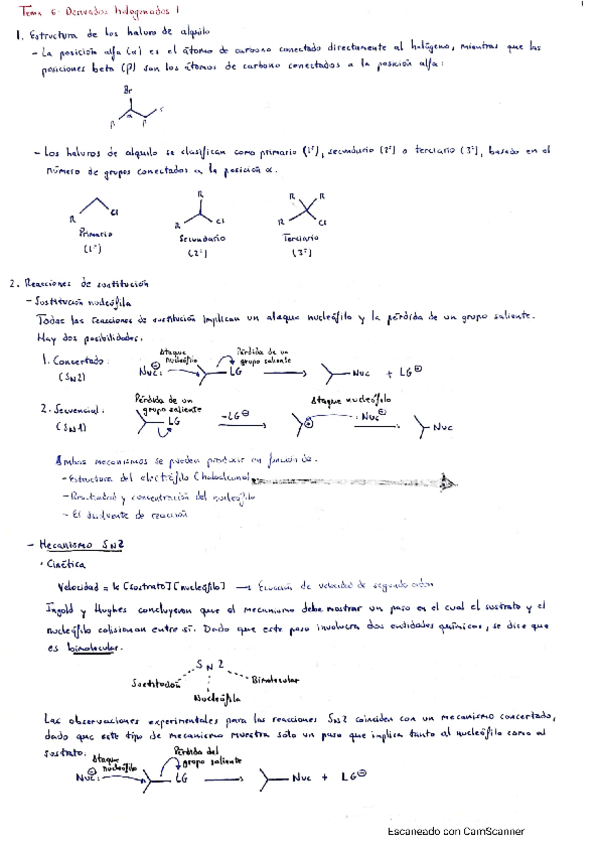 Tema 6: Derivados halogenados I
1
1. Estructura de los haluros de alquilo
- La posición alfa (α) es el átomo de carbono conectado directamente al halógeno, mientras que las
posiciones beta (β) son los átomos de carbono conectados a la posición alfa:
Br
α
β β
- Los haluros de alquilo se clasifican como primario (1º), secundario (2º) o terciario (3º), basado en el
número de grupos conectados a la posición α.
R Cl
R R Cl
R R R Cl
Primario Secundario Terciario
(1º) (2º) (3º)
2. Reacciones de sustitución
- Sustitución nucleófila
Todas las reacciones de sustitución implican un ataque nucleófilo y la pérdida de un grupo saliente.
Hay dos posibilidades.
1. Concertado: Ataque nucleófilo Pérdida de un grupo saliente
(SN2) Nuc:⊖ LG → Nuc + LG⊖
2. Secuencial: Pérdida de un grupo saliente Ataque nucleófilo
(SN1) LG -LG⊖ → ⊕ :Nuc⊖ → Nuc
Ambos mecanismos se pueden producir en función de:
- Estructura del electrófilo
- Reactividad y concentración del nucleófilo
- El disolvente de reacción
- Mecanismo SN2
· Cinética
Velocidad = k [sustrato][nucleófilo] → Ecuación de velocidad de segundo orden
Ingold y Hughes concluyeron que el mecanismo debe mostrar un paso en el cual el sustrato y el
nucleófilo colisionan entre sí. Dado que este paso involucra dos entidades químicas, se dice que
es bimolecular.
S N 2
Sustitución Bimolecular
Nucleófila
Las observaciones experimentales para las reacciones SN2 coinciden con un mecanismo concertado,
dado que este tipo de mecanismo muestra sólo un paso que implica tanto al nucleófilo como al
sustrato.
Ataque nucleófilo Pérdida del grupo saliente
Nuc:⊖ LG → Nuc + LG⊖
Escaneado con CamScanner